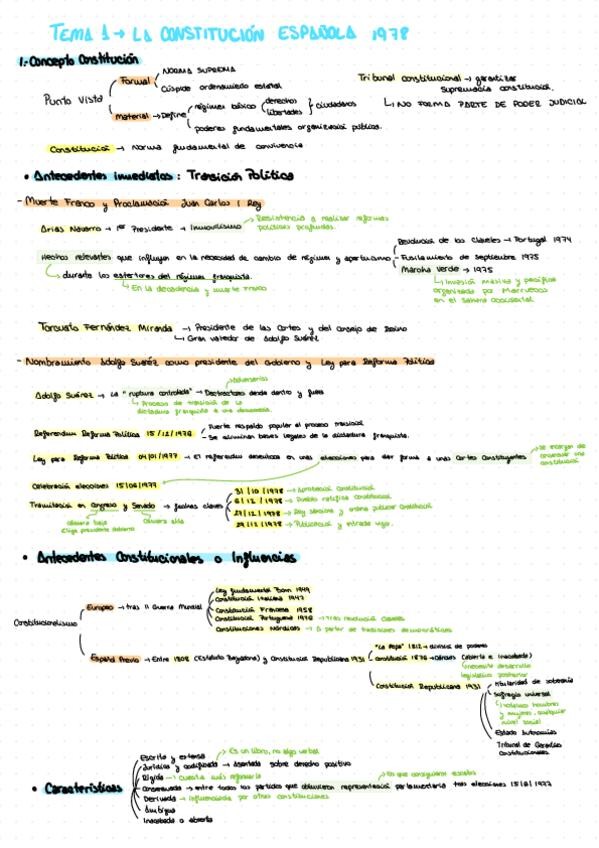 TEMA 1 → LA CONSTITUCIÓN ESPAÑOLA 1978
1.- Concepto Constitución
Punto Vista
Formal
NORMA SUPREMA
Cúspide ordenamiento estatal
Material → Define
régimen básico
derechos
libertades
ciudadanos
poderes fundamentales organización pública.
Tribunal constitucional → garantizar
supremacía constitucional.
↳ NO FORMA PARTE DE PODER JUDICIAL
Constitución → Norma fundamental de convivencia
• Antecedentes inmediatos: Transición Política
- Muerte Franco y Proclamación Juan Carlos I Rey
Arias Navarro → 1er Presidente → Inmovilismo
Resistencia a realizar reformas
políticas profundas.
Hechos relevantes que influyen en la necesidad de cambio de régimen y aperturismo
Revolución de los Claveles → Portugal 1974
Fusilamiento de Septiembre 1975
Marcha Verde → 1975
↳ Invasión masiva y pacífica
organizada por Marruecos
en el Sahara occidental
↳ durante los estertores del régimen franquista.
↳ En la decadencia y muerte Franco
Torcuato Fernández Miranda → Presidente de las Cortes y del Consejo de Reino
↳ Gran valedor de Adolfo Suárez
- Nombramiento Adolfo Suárez como presidente del Gobierno y Ley para Reforma Política
Adolfo Suárez → La "ruptura controlada" → Detractores desde dentro y fuera
Adversarios
↳ Proceso de transición de la
dictadura franquista a una democracia.
Referendum Reforma Política 15/12/1976
- Fuerte respaldo popular al proceso transición
- Se eliminan bases legales de la dictadura franquista.
Ley para Reforma Política 04/01/1977 → El referendum desemboca en unas elecciones para dar forma a unas Cortes Constituyentes
se encargan de
una
constitución
Celebración elecciones 15/06/1977
Tramitación en Congreso y Senado → fechas claves
Cámara baja
Elige presidente gobierno
Cámara alta
31/10/1978 → Aprobación Constitución
6/12/1978 → Pueblo ratifica Constitución
27/12/1978 → Rey sanciona y ordena publicar Constitución
29/12/1978 → Publicación y entrada vigor.
• Antecedentes Constitucionales o Influencias
Constitucionalismo
Europeo → tras II Guerra Mundial
Ley fundamental Bonn 1949
Constitución Italiana 1947
Constitución Francesa 1958
Constitución Portuguesa 1976 → Tras revolución claveles
Constituciones Nórdicas → A partir de tradiciones democráticas
Español Previo → Entre 1808 (Estatuto Bayona) y Constitución Republicana 1931
"La Pepa" 1812 → división de poderes
Constitución 1876 →
(necesita desarrollo
legislativo posterior
Constitución Republicana 1931
titularidad de soberanía
Sufragio universal
Incluimos hombres
y mujeres, cualquier
nivel social
Estado Autonomías
Tribunal de Garantías
Constitucionales
• Características
Escrita y extensa → Es un libro, no algo verbal
Jurídica y codificada → Asentada sobre derecho positivo
Rígida → Cuesta más reformarla
Consensuada → entre todos los partidos que obtuvieron representación parlamentaria tras elecciones 15/6/1977
los que consiguieron escaños
Derivada → influenciada por otras constituciones
Ambigua
Inacabada o abierta